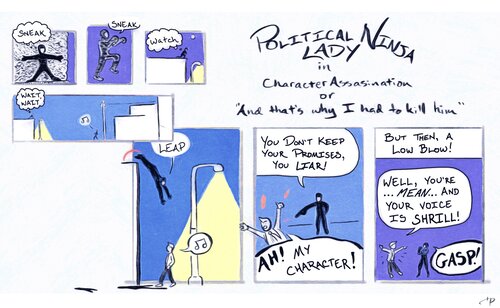 SNEAK
SNEAK
Watch
POLITICAL NINJA
LADY
in
Character Assasination
or
"And that's why I had to kill him"
WAIT,
WAIT
LEAP
YOU DON'T KEEP
YOUR PROMISES,
YOU LIAR!
AH! MY
CHARACTER!
BUT THEN, A
LOW BLOW!
WELL, YOU'RE
...MEAN... AND
YOUR VOICE
IS SHRILL!
GASP!